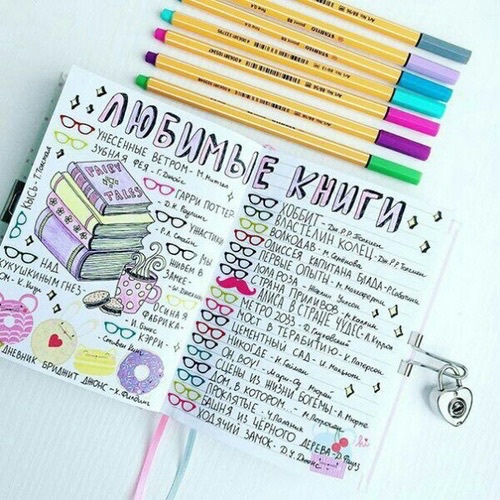 ЛЮБИМЫЕ КНИГИ
УНЕСЕННЫЕ ВЕТРОМ - М. Митчелл
ЗУБНАЯ ФЕЯ - Г. Джойс
КЫСЬ - Т. Толстая
FAIRY
TALES
ГАРРИ ПОТТЕР -
Дж. К. Роулинг
УЧАСТНИКИ
Р.Л. Стайн
МЫ
ЖИВЕМ В
ЗАМКЕ -
Ш. Джексон
НАД
КУКУШКИНЫМ ГНЕЗ
ОМ - К. Кизи
ОСИНАЯ
ФАБРИКА -
И. Бэнкс
КЭРРИ -
Стивен Кинг
ДНЕВНИК БРИДЖИТ ДЖОНС - Х. Филдинг
ХОББИТ - Дж. Р.Р. Толкиен
ВЛАСТЕЛИН КОЛЕЦ - Дж. Р.Р. Толкиен
ВОЛКОДАВ - М. Семёнова
ОДИССЕЯ КАПИТАНА БЛАДА - Р. Сабатини
ПЕРВЫЕ ОПЫТЫ -
ЛОЛА РОЗА -
СТРАНА ПРИЛИВОВ -
АЛИСА В СТРАНЕ ЧУДЕС - Л. Кэрролл
МЕТРО 2033 - Д. Глуховский
МОСТ В ТЕРАБИТИЮ - К. Патерсон
ЦЕМЕНТНЫЙ САД - И. Макьюэн
НИКОГДЕ - Н. Гейман
ОН, ВОУ! - Мари-Од Мюрай
СЦЕНЫ ИЗ ЖИЗНИ БОГЕМЫ - А. Мюрже
ДОМ, В КОТОРОМ... - М. Петросян
ПРОКЛЯТЫЕ - Ч. Паланик
БАШНЯ ИЗ ЧЕРНОГО ДЕРЕВА - Д. Фаулз
ХОДЯЧИЙ ЗАМОК - Д.У. Джонс
hi